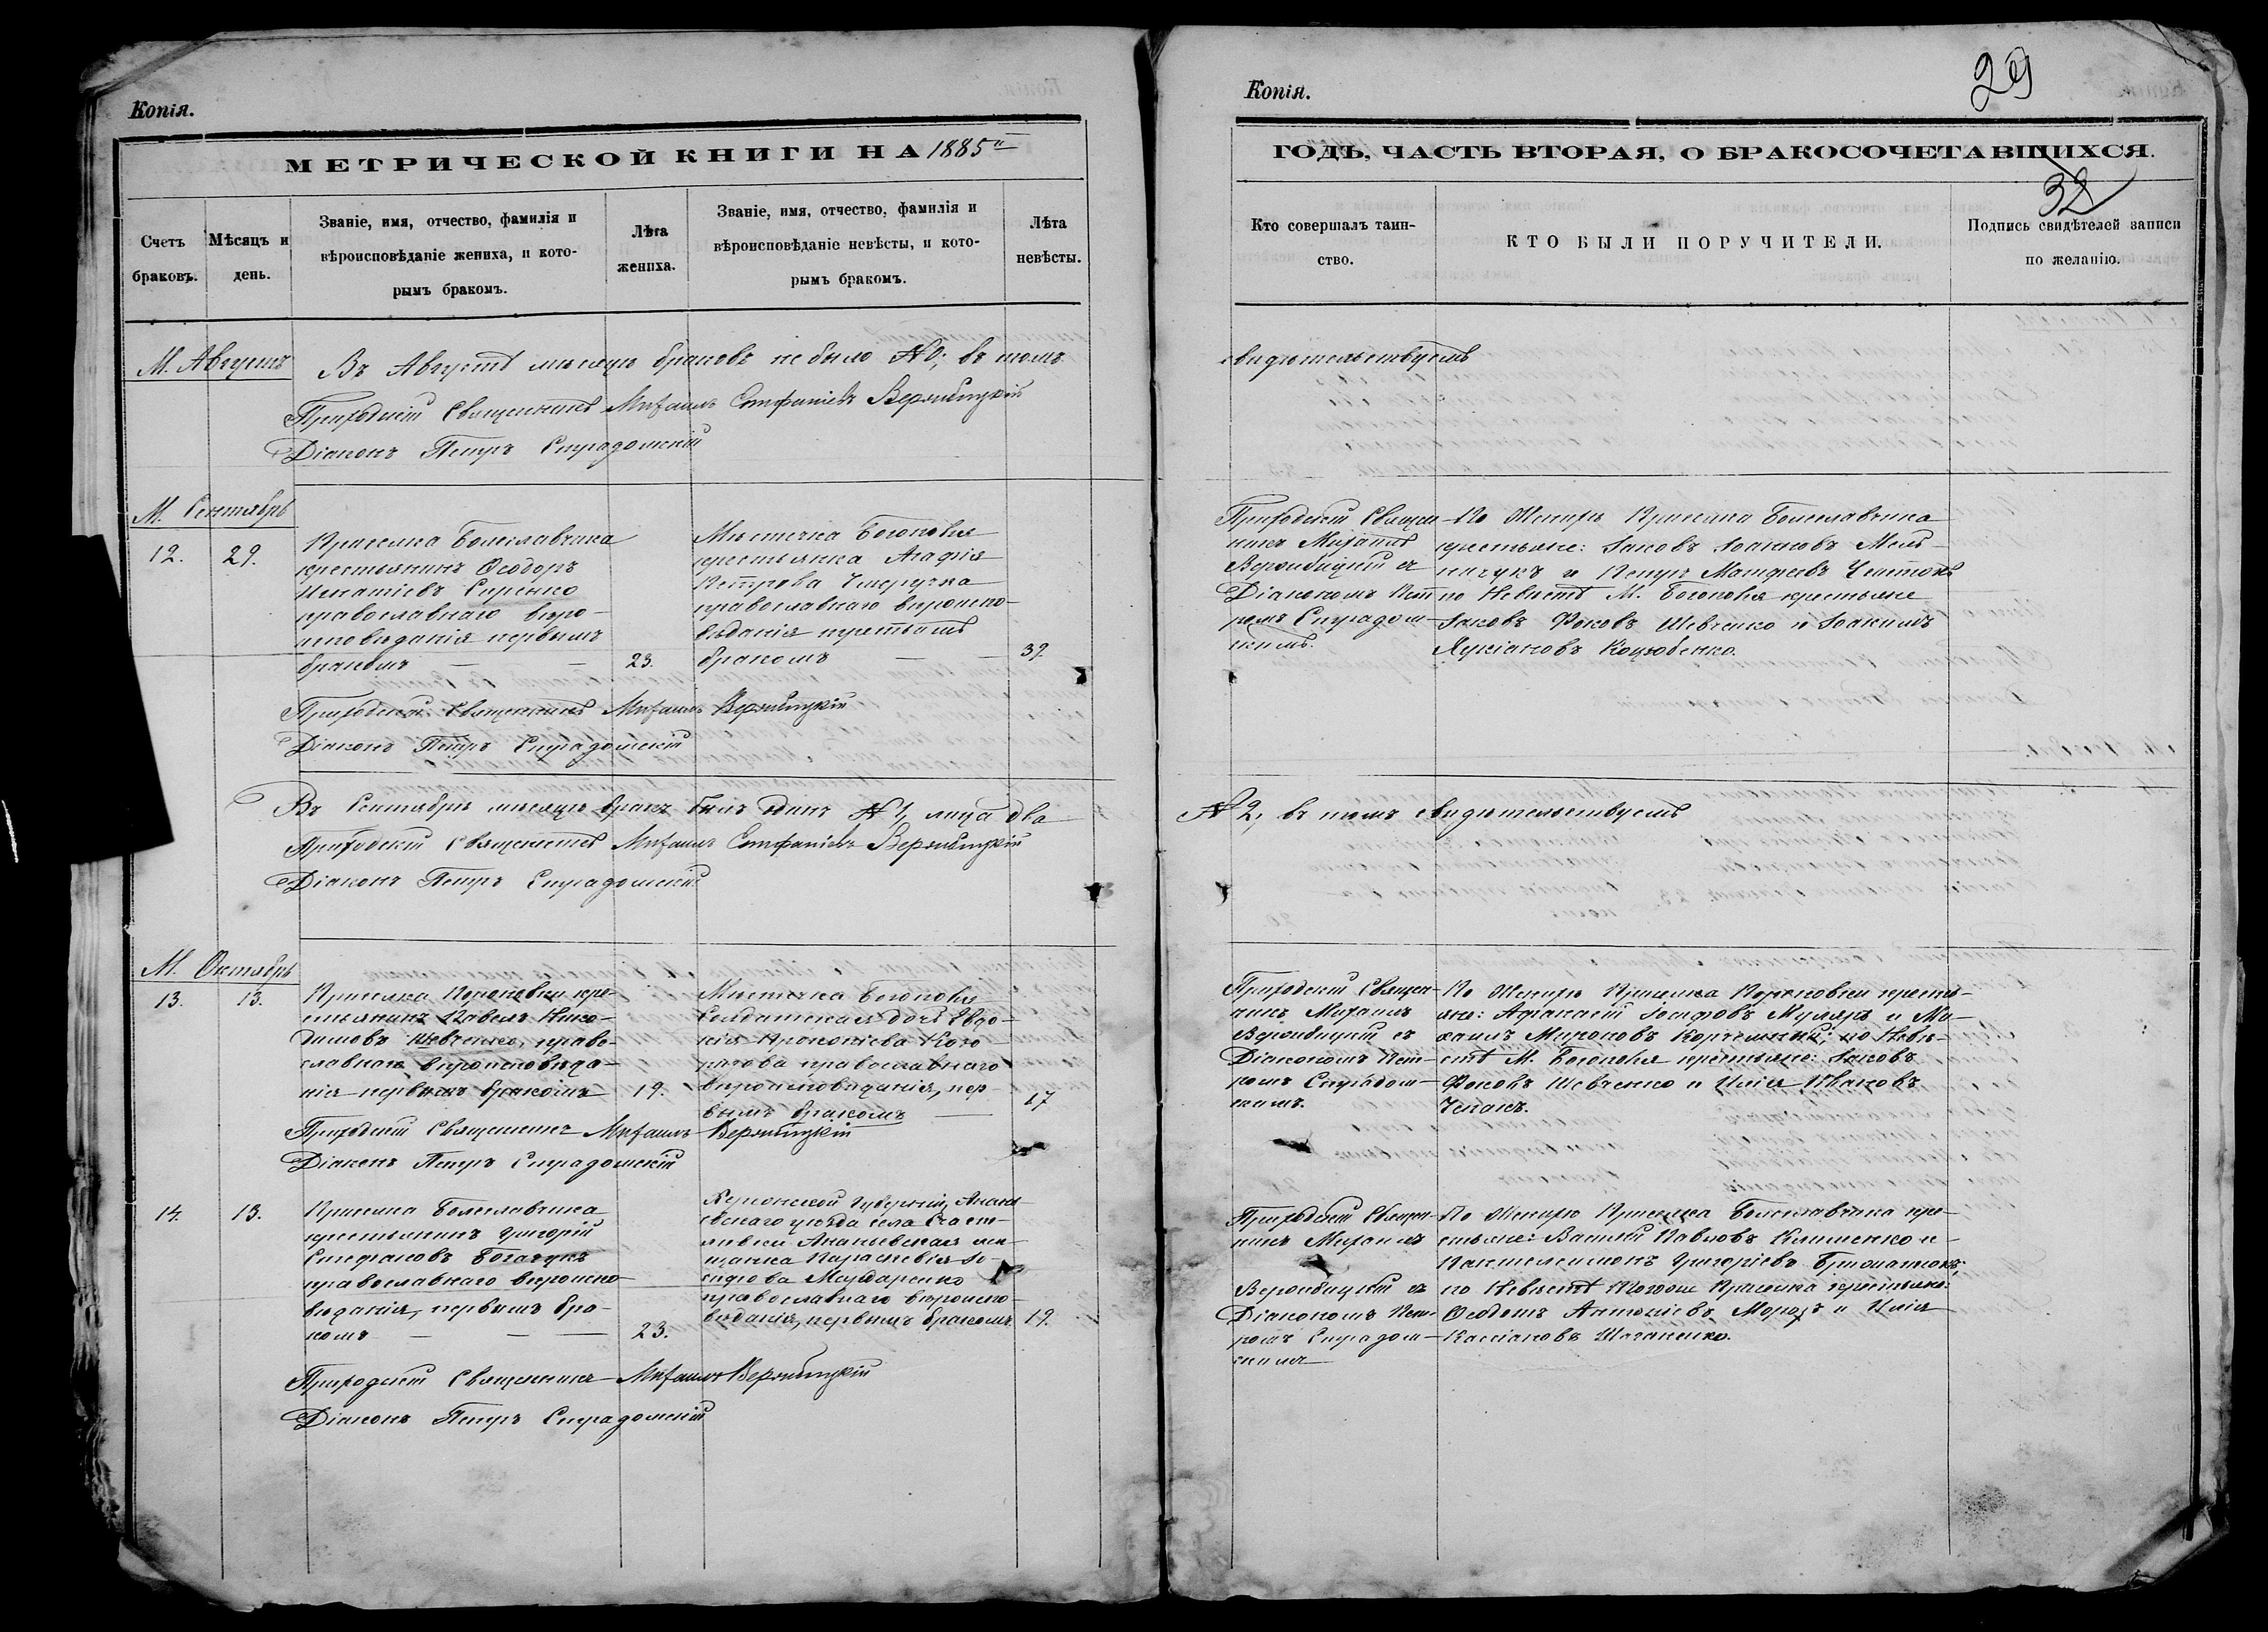 Копія.
МЕТРИЧЕСКОЙ КНИГИ НА 1885й
Счетъ браковъ.
Мѣсяцъ и день.
Званіе, имя, отчество, фамилія и
вѣроисповѣданіе жениха, и кото-
рымъ бракомъ.
Лѣта
жениха.
Званіе, имя, отчество, фамилія и
вѣроисповѣданіе невѣсты, и кото-
рымъ бракомъ.
Лѣта
невѣсты.
М. Августъ
Въ Августѣ мѣсяцѣ браковъ не было № 0; въ томъ
Приходскій Священникъ Михаилъ Стефаніевъ Вержбицкій
Діаконъ Петръ
М. Сентябрь
12.
29.
Приселка Болеславчика
крестьянинъ Ѳеодоръ
Игнатіевъ
православнаго вѣро-
исповѣданія первымъ
бракомъ
23.
Мѣстечка Богополя
крестьянка Агафія
Петрова
православнаго вѣроиспо-
вѣданія третьимъ
бракомъ
39.
Приходскій Священникъ Михаилъ Вержбицкій
Діаконъ Петръ
Въ Сентябрѣ мѣсяцѣ бракъ былъ одинъ № 1, лица два
Приходскій Священникъ Михаилъ Стефаніевъ Вержбицкій
Діаконъ Петръ
М. Октябрь
13.
13.
Приселка кре-
стьянинъ Павелъ Нико-
димовъ Шевченко, право-
славнаго вѣроисповѣда-
нія первымъ бракомъ
19.
Мѣстечка Богополя
Солдатская дочь Евдо-
кія Прокопіева
православнаго
вѣроисповѣданія, пер-
вымъ бракомъ
17
Приходскій Священникъ Михаилъ Вержбицкій
Діаконъ Петръ
14.
13.
Приселка Болеславчика
крестьянинъ Григорій
Стефановъ Богачукъ
православнаго вѣроиспо-
вѣданія, первымъ бра-
комъ
23.
Херсонской Губерніи, Анань-
евскаго уѣзда села Счаст-
ливки Ананьевская мѣ-
щанка Параскевія Іо-
сифова
православнаго вѣроиспо-
вѣданія, первымъ бракомъ.
19.
Приходскій Священникъ Михаилъ Вержбицкій
Діаконъ Петръ
Копія.
29
ГОДЪ, ЧАСТЬ ВТОРАЯ, О БРАКОСОЧЕТАВШИХСЯ.
32
Кто совершалъ таин-
ство.
КТО БЫЛИ ПОРУЧИТЕЛИ.
Подпись свидѣтелей записи
по желанію.
свидѣтельствуемъ
Приходскій Священ-
никъ Михаилъ
Вержбицкій съ
Діакономъ Пет-
ромъ
По Женихѣ Приселка Болеславчика
крестьяне: Іаковъ Іоанновъ Мель-
ничукъ и Петръ Матфеевъ
по Невѣстѣ М. Богополя крестьяне
Іаковъ Фоковъ Шевченко и Іоакимъ
Лукіановъ Коцюбенко.
№ 2, въ томъ свидѣтельствуемъ
Приходскій Священ-
никъ Михаилъ
Вержбицкій съ
Діакономъ Пет-
ромъ
По Женихѣ Приселка кресть-
яне: Афанасій Іосифовъ Муляръ и Ми-
хаилъ Мироновъ по Невѣ-
стѣ М. Богополя крестьяне: Іаковъ
Фоковъ Шевченко и Илія Ивановъ
Чепакъ.
Приходскій Священ-
никъ Михаилъ
Вержбицкій съ
Діакономъ Пет-
ромъ
По Женихѣ Приселка Болеславчика кре-
стьяне: Василій Павловъ Клименко и
Пантелеимонъ Григоріевъ
по Невѣстѣ Приселка крестьяне:
Ѳеодотъ Антоніевъ Морозъ и Илія
Кассіановъ